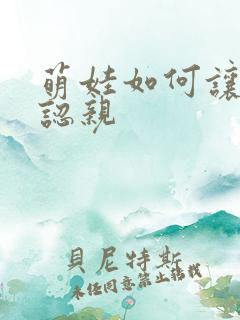 萌娃如何讓
認親
貝尼特斯
未經同意禁止轉載